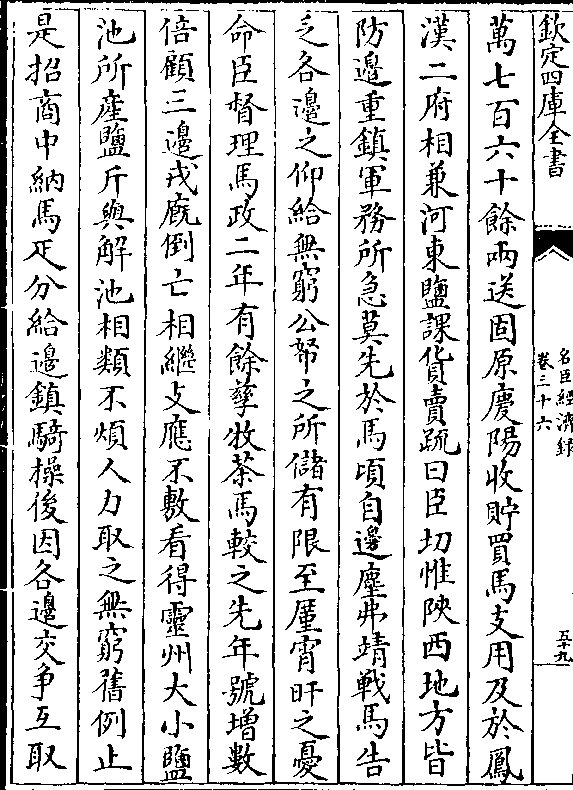 欽定四庫全書
名臣經濟録
卷三十六
五十九
萬七百六十餘兩送固原慶陽收貯買馬支用及於鳳
漢二府相兼河東鹽課貨賣疏曰臣切惟陜西地方皆
防邊重鎮軍務所急莫先於馬頃自邊塵弗靖戰馬告
乏各邊之仰給無窮公帑之所儲有限至厪宵旰之憂
命臣督理馬政二年有餘孳牧茶馬較之先年號增數
倍顧三邊戎廐倒亡相繼支應不敷看得靈州大小鹽
池所産鹽斤與解池相類不煩人力取之無窮舊例止
是招商中納馬疋分給邊鎮騎操後因各邊交争互取